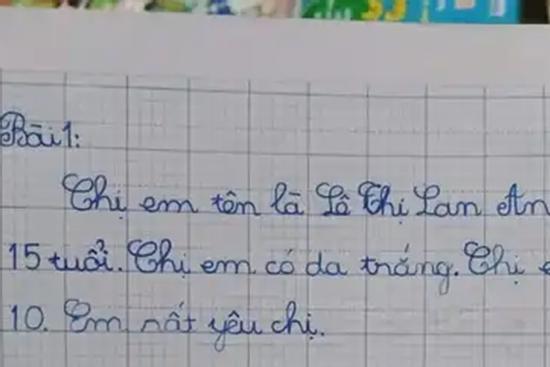 Bài 1:
Chị em tên là Lê Thị Lan An
15 tuổi. Chị em có da trắng. Chị
10. Em rất yêu chị.